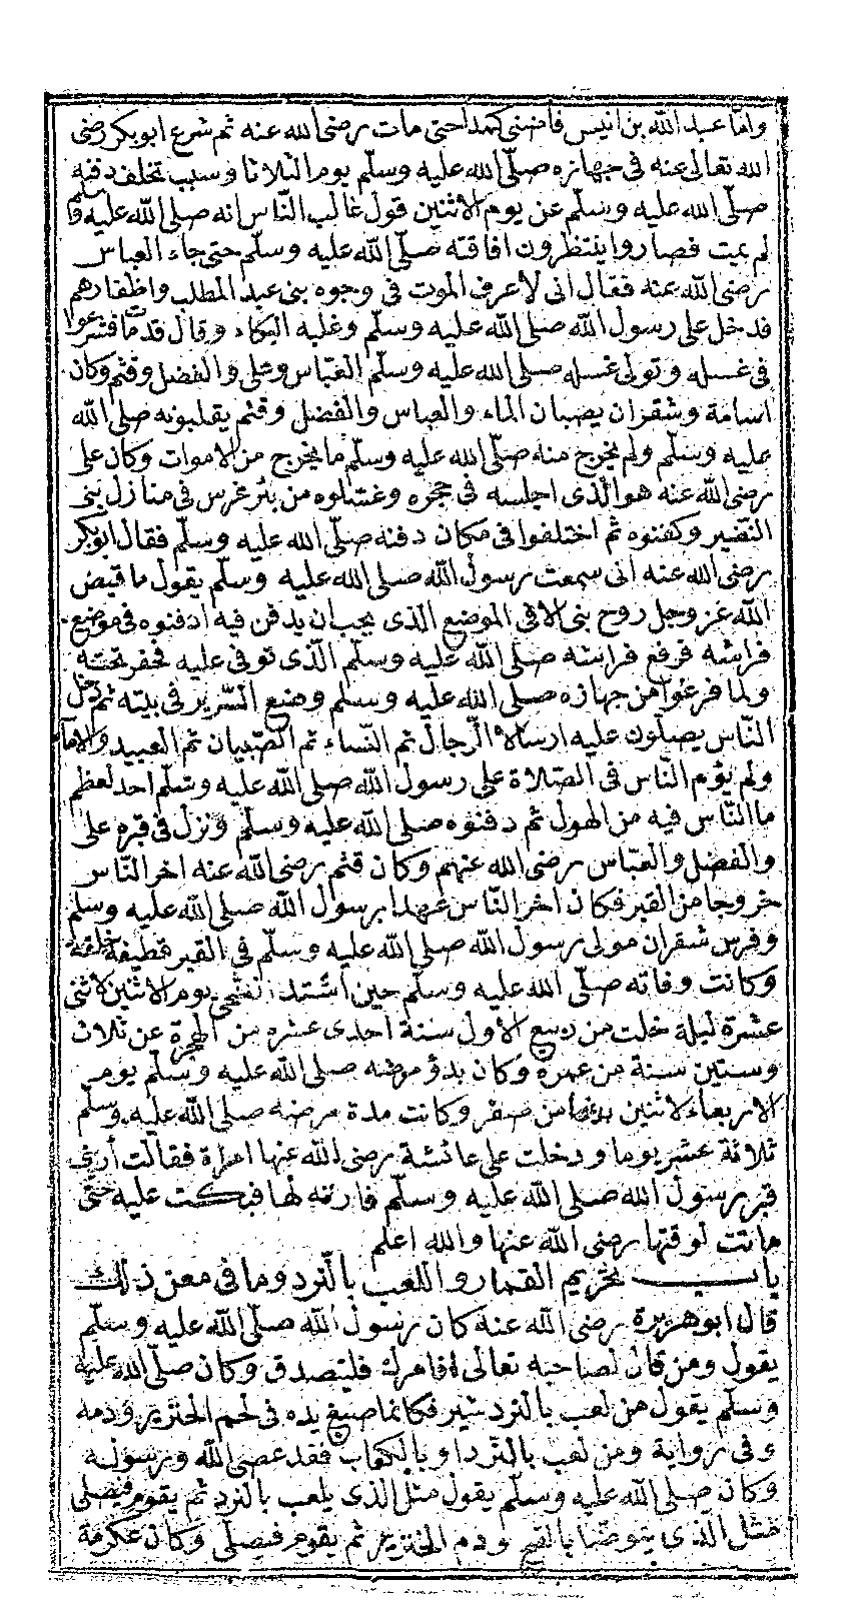 وأما عبد الله بن أنيس فأضنى كمدا حتى مات رضى الله عنه ثم شرع ابو بكر رضى
الله تعالى عنه فى جهازه صلى الله عليه وسلم يوم الثلاثا وسبب تخلف دفنه
صلى الله عليه وسلم عن يوم الاثنين قول غالب الناس انه صلى الله عليه وسلم
لم يمت فصاروا ينتظرون افاقته صلى الله عليه وسلم حتى جاء العباس
رضى الله عنه فقال انى لأعرف الموت فى وجوه بنى عبد المطلب واظفارهم
فدخل على رسول الله صلى الله عليه وسلم وغلبه البكاء وقال قد مات فشرعوا
فى غسله وتولى غسله صلى الله عليه وسلم العباس وعلى والفضل وقثم وكان
اسامة وشقران يصبان الماء والعباس والفضل وقثم يقلبونه صلى الله
عليه وسلم ولم يخرج منه صلى الله عليه وسلم ما يخرج من الاموات وكان على
رضى الله عنه هو الذى اجلسه فى حجره وغسلوه من بئر غرس فى منازل بنى
النضير وكفنوه ثم اختلفوا فى مكان دفنه صلى الله عليه وسلم فقال ابو بكر
رضى الله عنه انى سمعت رسول الله صلى الله عليه وسلم يقول ما قبض
الله عز وجل روح نبى الا فى الموضع الذى يجب ان يدفن فيه ادفنوه فى موضع
فراشه فرفع فراشه صلى الله عليه وسلم الذى توفى عليه فحفر تحته
ولما فرغوا من جهازه صلى الله عليه وسلم وضع السرير فى بيته ثم دخل
الناس يصلون عليه ارسالا الرجال ثم النساء ثم الصبيان ثم العبيد والاما
ولم يؤم الناس فى الصلاة على رسول الله صلى الله عليه وسلم احد لعظم
ما الناس فيه من الهول ثم دفنوه صلى الله عليه وسلم ونزل فى قبره على
والفضل والعباس رضى الله عنهم وكان قثم رضى الله عنه اخر الناس
خروجا من القبر فكان اخر الناس عهدا برسول الله صلى الله عليه وسلم
وفرش شقران مولى رسول الله صلى الله عليه وسلم فى القبر قطيفة خلقة
وكانت وفاته صلى الله عليه وسلم حين اشتد الضحى يوم الاثنين لاثنى
عشرة ليلة خلت من ربيع الاول سنة احدى عشره من الهجرة عن ثلاث
وستين سنة من عمره وكان بدؤ مرضه صلى الله عليه وسلم يوم
الاربعاء لاثنين من صفر وكانت مدة مرضه صلى الله عليه وسلم
ثلاثة عشر يوما ودخلت على عائشة رضى الله عنها امراة فقالت أرنى
قبر رسول الله صلى الله عليه وسلم فارته لها فبكت عليه حتى
ماتت لوقتها رضى الله عنها والله اعلم
باب تحريم القمار واللعب بالنرد وما فى معنى ذلك
قال ابو هريرة رضى الله عنه كان رسول الله صلى الله عليه وسلم
يقول ومن قال لصاحبه تعالى اقامرك فليتصدق وكان صلى الله عليه
وسلم يقول من لعب بالنرد شير فكانما صبغ يده فى لحم الخنزير ودمه
وفى رواية ومن لعب بالنرد او بالكعاب فقد عصى الله ورسوله
وكان صلى الله عليه وسلم يقول مثل الذى يلعب بالنرد ثم يقوم فيصلى
مثل الذى يتوضا بالقيح ودم الخنزير ثم يقوم فيصلى وكان عكرمة